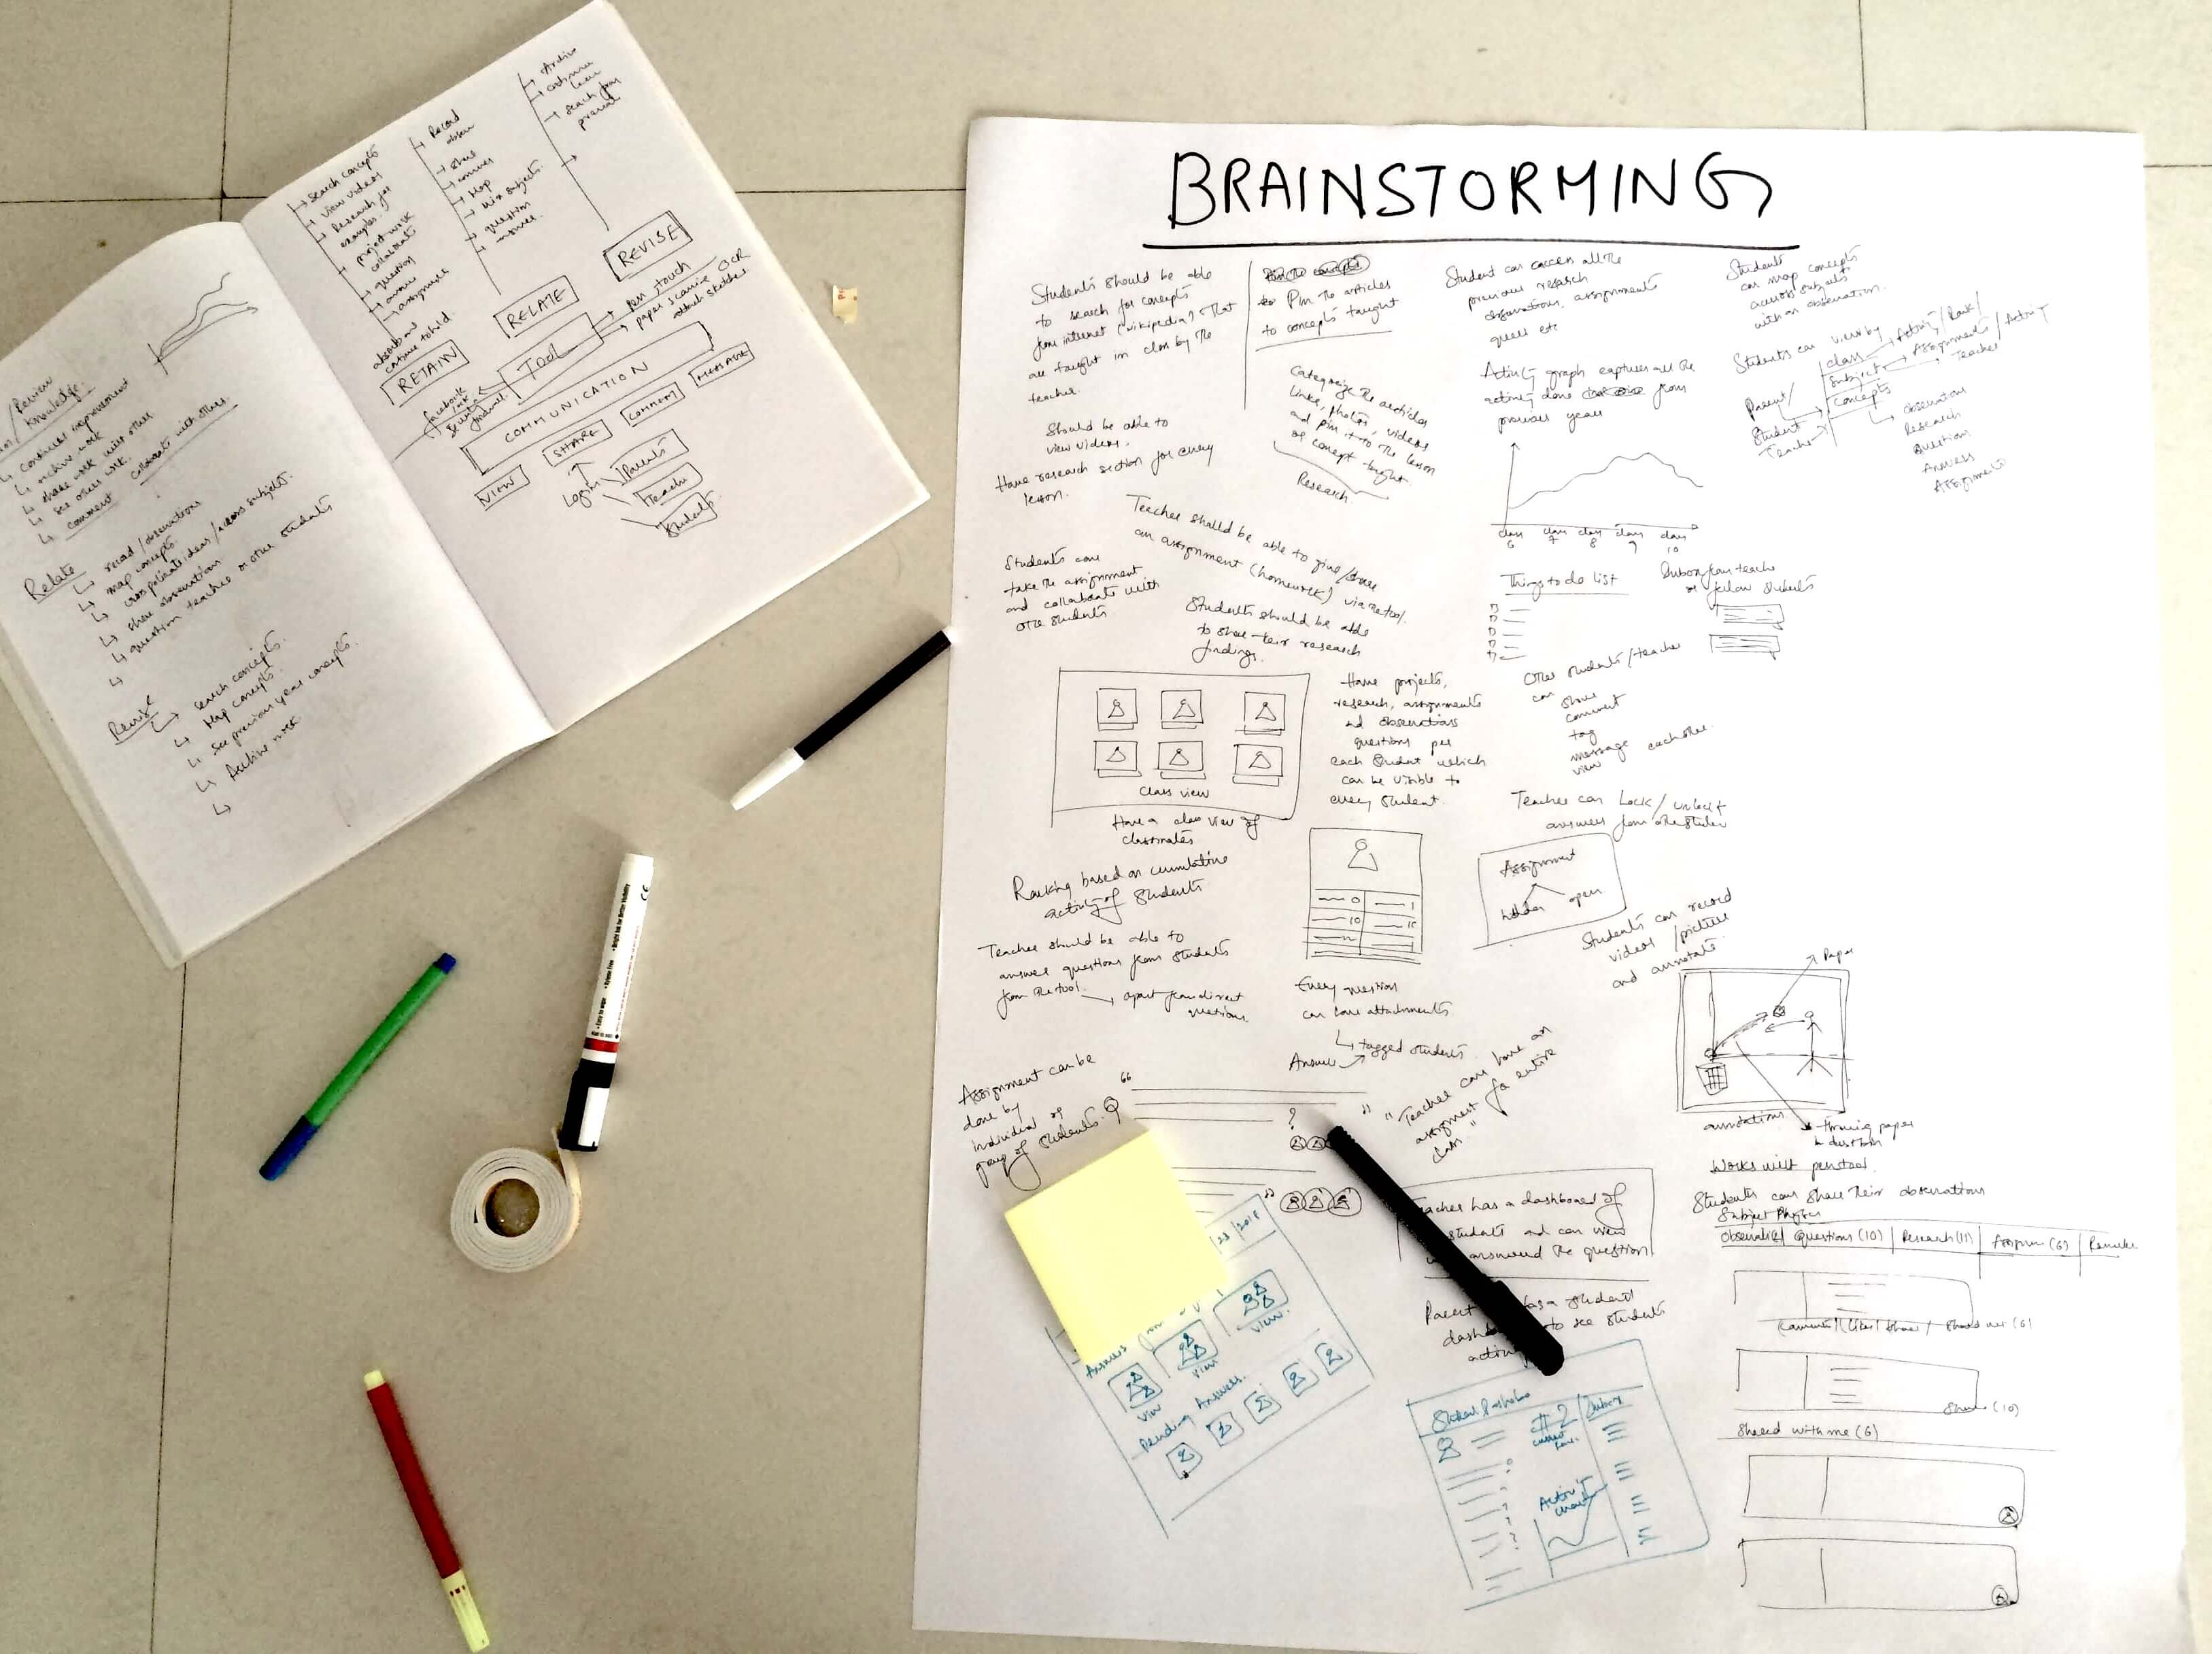 search concepts
view videos
Research for
examples
project work
collaborate
question
answer
assignment
RETAIN
Record
share
Map
question
answer
RELATE
Archive
REVISE
Tool
pen touch
paper scanning OCR
attach sketches
facebook
COMMUNICATION
VIEW
SHARE
COMMENT
MESSAGE
Login
Parents
Teacher
Students
/Review
Knowledge.
continual improvement
archive work
share work with other
see others work.
comment collaborate with others.
Relate
record/observations
map concepts.
cross pollinate ideas/across subjects.
share observations
question teacher or other students
Revise
search concepts.
Map concepts.
See previous year concepts.
Archive work.
BRAINSTORMING
Students should be able
to search for concepts
from internet (wikipedia) that
are taught in class by the
teacher.
Should be able to
view videos.
Have research section for every
lesson.
to Pin the articles
to concepts taught
Categorize the articles
links, photos, videos
and pin it to the lesson
or concept taught
Research
Student can access all the
previous research
observations, assignments
etc
Activity graph captures all the
activity done from
previous year
class 6
class 7
class 8
class 9
class 10
Students
can map concepts
across subjects
with an observation.
Students can view by
class
Activity/Rank/
Subject
Assignments/Activity
Teacher
Concepts
Parent/
Student
Teacher
observation
Research
Question
Answers
Assignments
Teacher should be able to give/share
an assignment (homework) via the tool.
Students can
take the assignment
and collaborate with
other students
Students should be able
to share their research
findings.
Things to do list
from teacher
or fellow students
class view
Have a class view of
classmates
Have projects,
research, assignments
and observations
questions per
each student which
can be visible to
every student.
Other students/teacher
can share
comment
tag
message each other.
view
Teacher can Lock/unlock
answers from other student
Assignment
hidden open
Ranking based on cumulative
activity of students
Teacher should be able to
answer questions from students
from the tool.
apart from direct
questions.
Every question
can have attachments
tagged students
Answer
Students can record
videos/picture
and annotate
Paper
annotations
throwing paper
in dustbin
Works with pen tool.
Students can share their observations
Assignment can be
done by
individual or
group of students.
"Teacher can have an
assignment for entire
class"
Teacher has a dashboard of
students and can view
answered the question
Parent has a student
to see students
Subject Physics
Questions (10)
Research (11)
Remarks
Share (10)
Shared with me (6)
Answers
view
view
view
Pending Answers.
#2
Activity